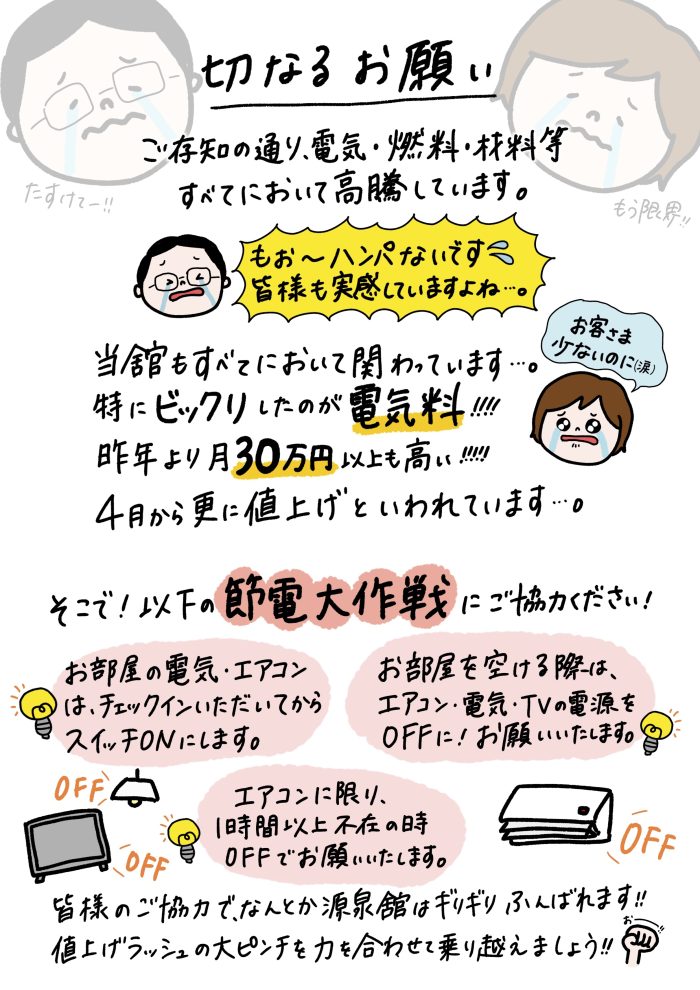 切なるお願い
たすけてー!!
もう限界!!
ご存知の通り、電気・燃料・材料等
すべてにおいて高騰しています。
もぉ〜ハンパないです
皆様も実感していますよね…。
お客さま
少ないのに(涙)
当舘もすべてにおいて関わっています…。
特にビックリしたのが電気料!!!!
昨年より月30万円以上も高い!!!!!
4月から更に値上げといわれています…。
そこで!以下の節電大作戦にご協力ください!
お部屋の電気・エアコン
は、チェックインいただいてから
スイッチONにします。
お部屋を空ける際は、
エアコン・電気・TVの電源を
OFFに!お願いいたします。
OFF
OFF
エアコンに限り、
1時間以上不在の時
OFFでお願いいたします。
OFF
皆様のご協力で、なんとか源泉舘はギリギリふんばれます!!
値上げラッシュの大ピンチを力を合わせて乗り越えましょう!!
おー!!